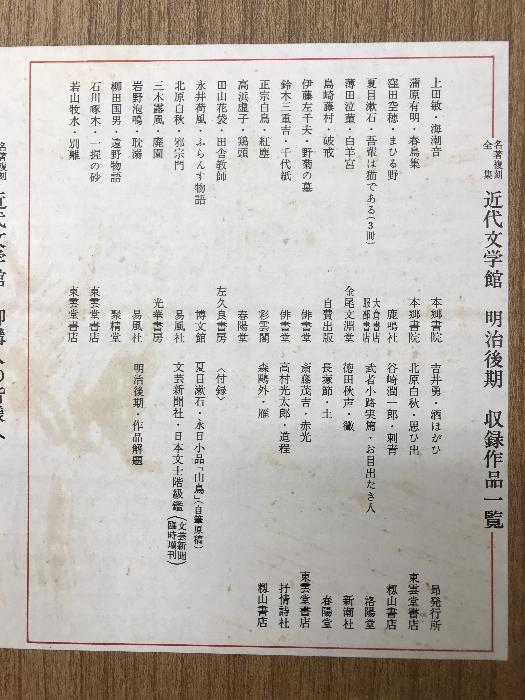 名著複刻全集 近代文学館 明治後期 収録作品一覧
上田敏・海潮音 本郷書院
蒲原有明・春鳥集 本郷書院
窪田空穂・まひる野 鹿鳴社
夏目漱石・吾輩は猫である(3冊) 大倉書店 服部書店
薄田泣菫・白羊宮 金尾文淵堂
島崎藤村・破戒 自費出版
伊藤左千夫・野菊の墓 俳書堂
鈴木三重吉・千代紙 俳書堂
正宗白鳥・紅塵 彩雲閣
高浜虚子・鶏頭 春陽堂
田山花袋・田舎教師 左久良書房
永井荷風・ふらんす物語 博文館
北原白秋・邪宗門 易風社
三木露風・廃園 光華書房
岩野泡鳴・耽溺 易風社
柳田国男・遠野物語 聚精堂
石川啄木・一握の砂 東雲堂書店
若山牧水・別離 東雲堂書店
吉井勇・酒ほがひ 昴発行所
北原白秋・思ひ出 東雲堂書店
谷崎潤一郎・刺青 籾山書店
武者小路実篤・お目出たき人 洛陽堂
徳田秋声・黴 新潮社
長塚節・土 春陽堂
斎藤茂吉・赤光 東雲堂書店
高村光太郎・道程 抒情詩社
森鷗外・雁 籾山書店
〈付録〉
夏目漱石・永日小品「山鳥」(自筆原稿)
文芸新聞社・日本文士階級鑑(文芸新聞臨時増刊)
明治後期・作品解題
名著複刻 近代文学館